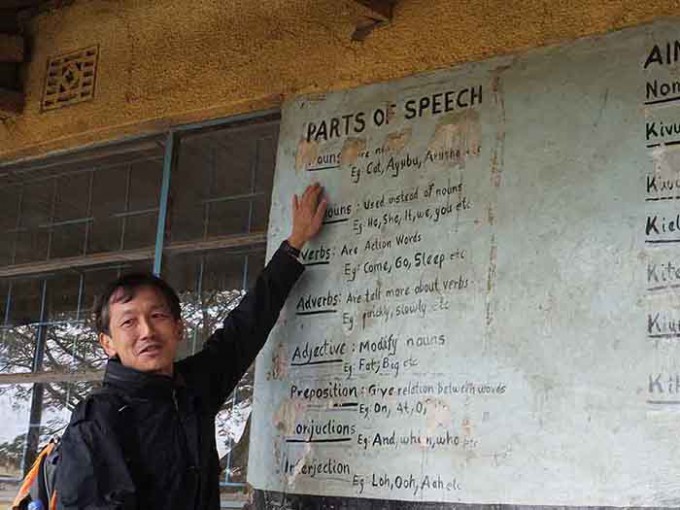 PARTS OF SPEECH
ouns
Eg: Cat, Ayubu, Arusha etc
ouns: Used instead of nouns
Eg: He, She, It, we, you etc
Verbs: Are Action Words
Eg: Come, Go, Sleep etc
Adverbs: Are tell more about verbs
Eg: quickly, slowly etc
Adjective: Modify nouns
Eg: Fat, Big etc
Preposition: Give relation between words
Eg: On, At, O
Conjuctions
Eg: And, when, who etc
Interjection
Eg: Loh, Ooh, Aah etc
AIN
Nom
Kivu
Kiel